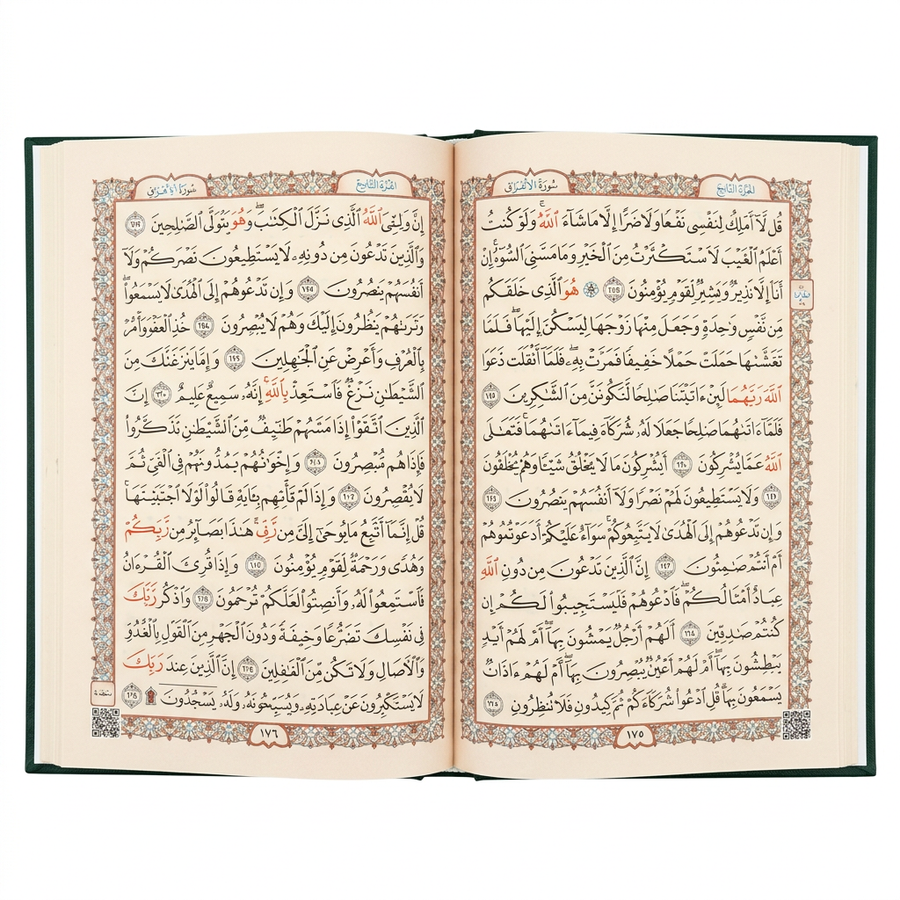 قُل لَّآ أَمْلِكُ لِنَفْسِى نَفْعًا وَلَا ضَرًّا إِلَّا مَا شَآءَ ٱللَّهُ ۚ وَلَوْ كُنتُ
أَعْلَمُ ٱلْغَيْبَ لَٱسْتَكْثَرْتُ مِنَ ٱلْخَيْرِ وَمَا مَسَّنِىَ ٱلسُّوٓءُ ۚ إِنْ
أَنَا۠ إِلَّا نَذِيرٌ وَبَشِيرٌ لِّقَوْمٍ يُؤْمِنُونَ ۞ هُوَ ٱلَّذِى خَلَقَكُم
مِّن نَّفْسٍ وَٰحِدَةٍ وَجَعَلَ مِنْهَا زَوْجَهَا لِيَسْكُنَ إِلَيْهَا ۖ فَلَمَّا
تَغَشَّىٰهَا حَمَلَتْ حَمْلًا خَفِيفًا فَمَرَّتْ بِهِۦ ۖ فَلَمَّآ أَثْقَلَت دَّعَوَا
ٱللَّهَ رَبَّهُمَا لَئِنْ ءَاتَيْتَنَا صَٰلِحًا لَّنَكُونَنَّ مِنَ ٱلشَّٰكِرِينَ
فَلَمَّآ ءَاتَىٰهُمَا صَٰلِحًا جَعَلَا لَهُۥ شُرَكَآءَ فِيمَآ ءَاتَىٰهُمَا ۚ فَتَعَٰلَى
ٱللَّهُ عَمَّا يُشْرِكُونَ أَيُشْرِكُونَ مَا لَا يَخْلُقُ شَيْـًٔا وَهُمْ يُخْلَقُونَ
وَلَا يَسْتَطِيعُونَ لَهُمْ نَصْرًا وَلَآ أَنفُسَهُمْ يَنصُرُونَ
وَإِن تَدْعُوهُمْ إِلَى ٱلْهُدَىٰ لَا يَتَّبِعُوكُمْ ۚ سَوَآءٌ عَلَيْكُمْ أَدَعَوْتُمُوهُمْ
أَمْ أَنتُمْ صَٰمِتُونَ إِنَّ ٱلَّذِينَ تَدْعُونَ مِن دُونِ ٱللَّهِ
عِبَادٌ أَمْثَالُكُمْ ۖ فَٱدْعُوهُمْ فَلْيَسْتَجِيبُوا۟ لَكُمْ إِن
كُنتُمْ صَٰدِقِينَ أَلَهُمْ أَرْجُلٌ يَمْشُونَ بِهَآ ۖ أَمْ لَهُمْ أَيْدٍ
يَبْطِشُونَ بِهَآ ۖ أَمْ لَهُمْ أَعْيُنٌ يُبْصِرُونَ بِهَآ ۖ أَمْ لَهُمْ ءَاذَانٌ
يَسْمَعُونَ بِهَا ۗ قُلِ ٱدْعُوا۟ شُرَكَآءَكُمْ ثُمَّ كِيدُونِ فَلَا تُنظِرُونِ
١٧٥
إِنَّ وَلِـِّۧىَ ٱللَّهُ ٱلَّذِى نَزَّلَ ٱلْكِتَٰبَ ۖ وَهُوَ يَتَوَلَّى ٱلصَّٰلِحِينَ
وَٱلَّذِينَ تَدْعُونَ مِن دُونِهِۦ لَا يَسْتَطِيعُونَ نَصْرَكُمْ وَلَآ
أَنفُسَهُمْ يَنصُرُونَ وَإِن تَدْعُوهُمْ إِلَى ٱلْهُدَىٰ لَا يَسْمَعُوا۟ ۖ
وَتَرَىٰهُمْ يَنظُرُونَ إِلَيْكَ وَهُمْ لَا يُبْصِرُونَ خُذِ ٱلْعَفْوَ وَأْمُرْ
بِٱلْعُرْفِ وَأَعْرِضْ عَنِ ٱلْجَٰهِلِينَ وَإِمَّا يَنزَغَنَّكَ مِنَ
ٱلشَّيْطَٰنِ نَزْغٌ فَٱسْتَعِذْ بِٱللَّهِ ۚ إِنَّهُۥ سَمِيعٌ عَلِيمٌ إِنَّ
ٱلَّذِينَ ٱتَّقَوْا۟ إِذَا مَسَّهُمْ طَٰٓئِفٌ مِّنَ ٱلشَّيْطَٰنِ تَذَكَّرُوا۟
فَإِذَا هُم مُّبْصِرُونَ وَإِخْوَٰنُهُمْ يَمُدُّونَهُمْ فِى ٱلْغَىِّ ثُمَّ
لَا يُقْصِرُونَ وَإِذَا لَمْ تَأْتِهِم بِـَٔايَةٍ قَالُوا۟ لَوْلَا ٱجْتَبَيْتَهَا ۚ
قُلْ إِنَّمَآ أَتَّبِعُ مَا يُوحَىٰٓ إِلَىَّ مِن رَّبِّى ۚ هَٰذَا بَصَآئِرُ مِن رَّبِّكُمْ
وَهُدًى وَرَحْمَةٌ لِّقَوْمٍ يُؤْمِنُونَ وَإِذَا قُرِئَ ٱلْقُرْءَانُ
فَٱسْتَمِعُوا۟ لَهُۥ وَأَنصِتُوا۟ لَعَلَّكُمْ تُرْحَمُونَ وَٱذْكُر رَّبَّكَ
فِى نَفْسِكَ تَضَرُّعًا وَخِيفَةً وَدُونَ ٱلْجَهْرِ مِنَ ٱلْقَوْلِ بِٱلْغُدُوِّ
وَٱلْءَاصَالِ وَلَا تَكُن مِّنَ ٱلْغَٰفِلِينَ إِنَّ ٱلَّذِينَ عِندَ رَبِّكَ
لَا يَسْتَكْبِرُونَ عَنْ عِبَادَتِهِۦ وَيُسَبِّحُونَهُۥ وَلَهُۥ يَسْجُدُونَ ۩
١٧٦